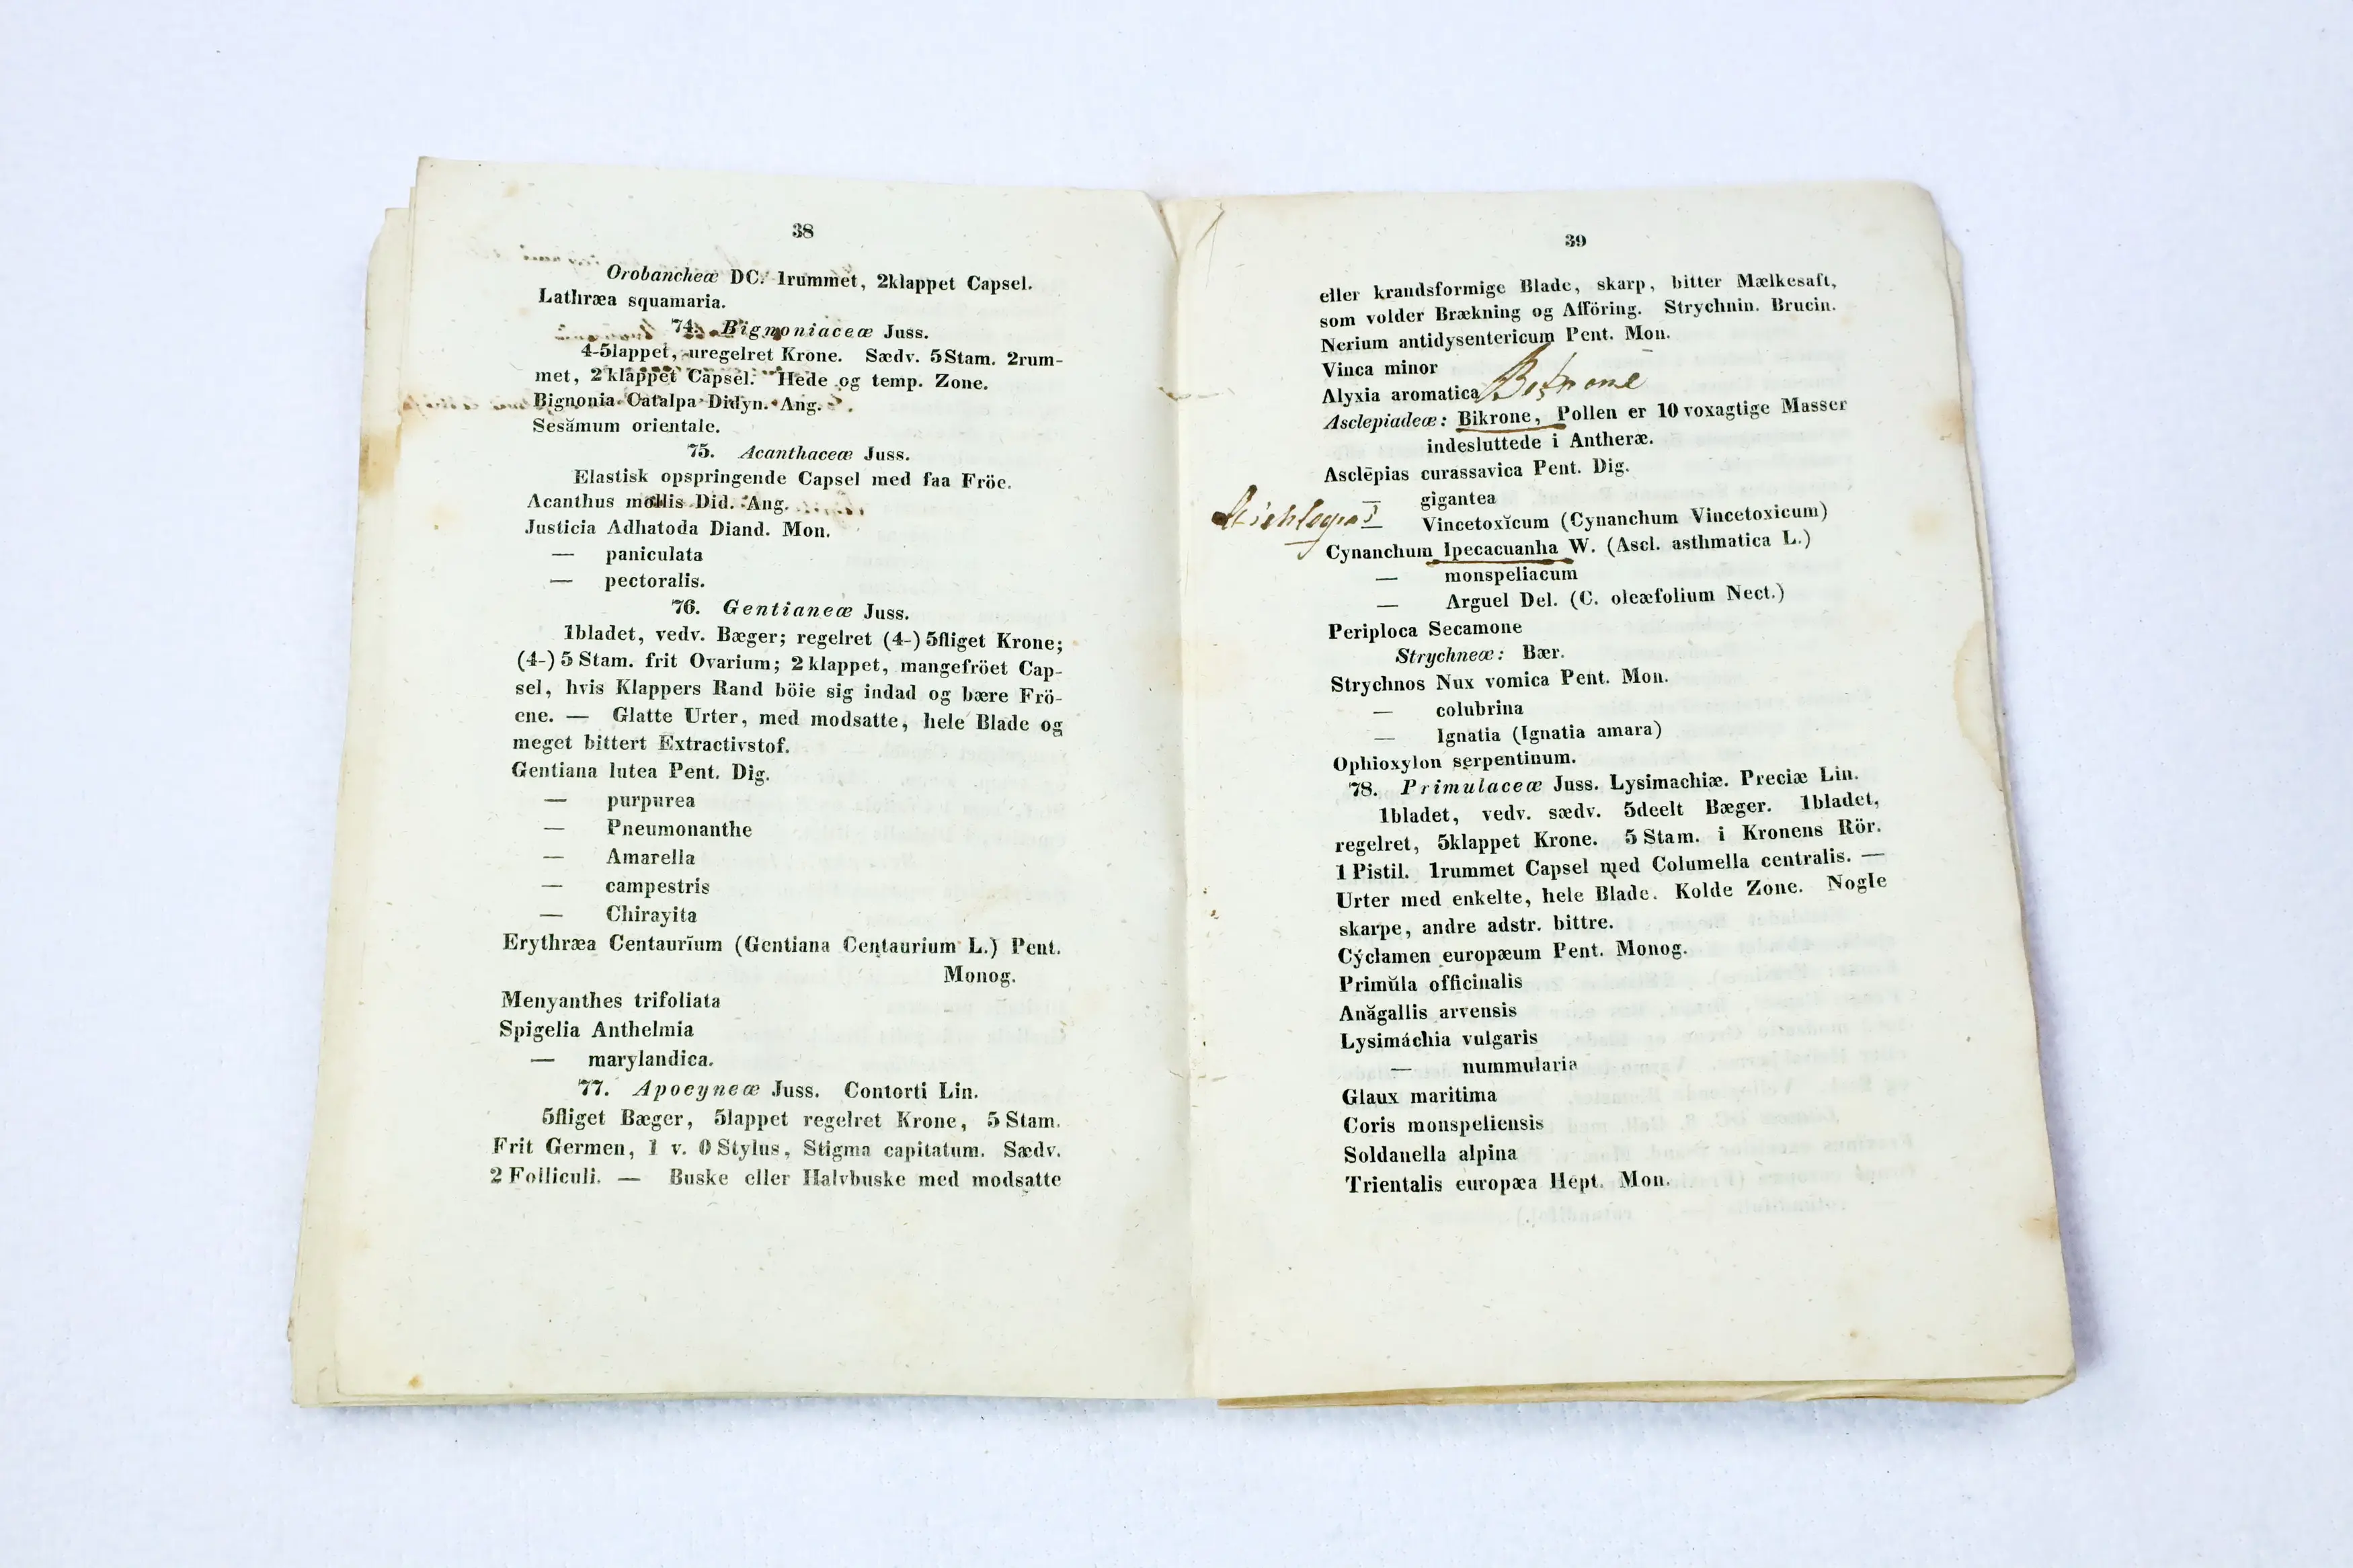 38
Orobancheæ DC. 1rummet, 2klappet Capsel.
Lathræa squamaria.
74. Bignoniaceæ Juss.
4-5lappet, uregelret Krone. Sædv. 5 Stam. 2rum-
met, 2 klappet Capsel. Hede og temp. Zone.
Bignonia Catalpa Didyn. Ang.
Sesămum orientale.
75. Acanthaceæ Juss.
Elastisk opspringende Capsel med faa Fröe.
Acanthus mollis Did. Ang.
Justicia Adhatoda Diand. Mon.
— paniculata
— pectoralis.
76. Gentianeæ Juss.
1bladet, vedv. Bæger; regelret (4-) 5fliget Krone;
(4-) 5 Stam. frit Ovarium; 2 klappet, mangefröet Cap-
sel, hvis Klappers Rand böie sig indad og bære Frö-
ene. — Glatte Urter, med modsatte, hele Blade og
meget bittert Extractivstof.
Gentiana lutea Pent. Dig.
— purpurea
— Pneumonanthe
— Amarella
— campestris
— Chirayita
Erythræa Centaurĭum (Gentiana Centaurium L.) Pent.
Monog.
Menyanthes trifoliata
Spigelia Anthelmia
— marylandica.
77. Apocyneæ Juss. Contorti Lin.
5fliget Bæger, 5lappet regelret Krone, 5 Stam.
Frit Germen, 1 v. 0 Stylus, Stigma capitatum. Sædv.
2 Folliculi. — Buske eller Halvbuske med modsatte
39
eller krandsformige Blade, skarp, bitter Mælkesaft,
som volder Brækning og Afföring. Strychnin. Brucin.
Nerium antidysentericum Pent. Mon.
Vinca minor
Alyxia aromatica
Asclepiadeæ: Bikrone, Pollen er 10 voxagtige Masser
indesluttede i Antheræ.
Asclēpias curassavica Pent. Dig.
— gigantea
— Vincetoxĭcum (Cynanchum Vincetoxicum)
Cynanchum Ipecacuanha W. (Ascl. asthmatica L.)
— monspeliacum
— Arguel Del. (C. oleæfolium Nect.)
Periploca Secamone
Strychneæ: Bær.
Strychnos Nux vomica Pent. Mon.
— colubrina
— Ignatia (Ignatia amara)
Ophioxylon serpentinum.
78. Primulaceæ Juss. Lysimachiæ. Preciæ Lin.
1bladet, vedv. sædv. 5deelt Bæger. 1bladet,
regelret, 5klappet Krone. 5 Stam. i Kronens Rör.
1 Pistil. 1rummet Capsel med Columella centralis. —
Urter med enkelte, hele Blade. Kolde Zone. Nogle
skarpe, andre adstr. bittre.
Cýclamen europæum Pent. Monog.
Primŭla officinalis
Anăgallis arvensis
Lysimáchia vulgaris
— nummularia
Glaux maritima
Coris monspeliensis
Soldanella alpina
Trientalis europæa Hept. Mon.